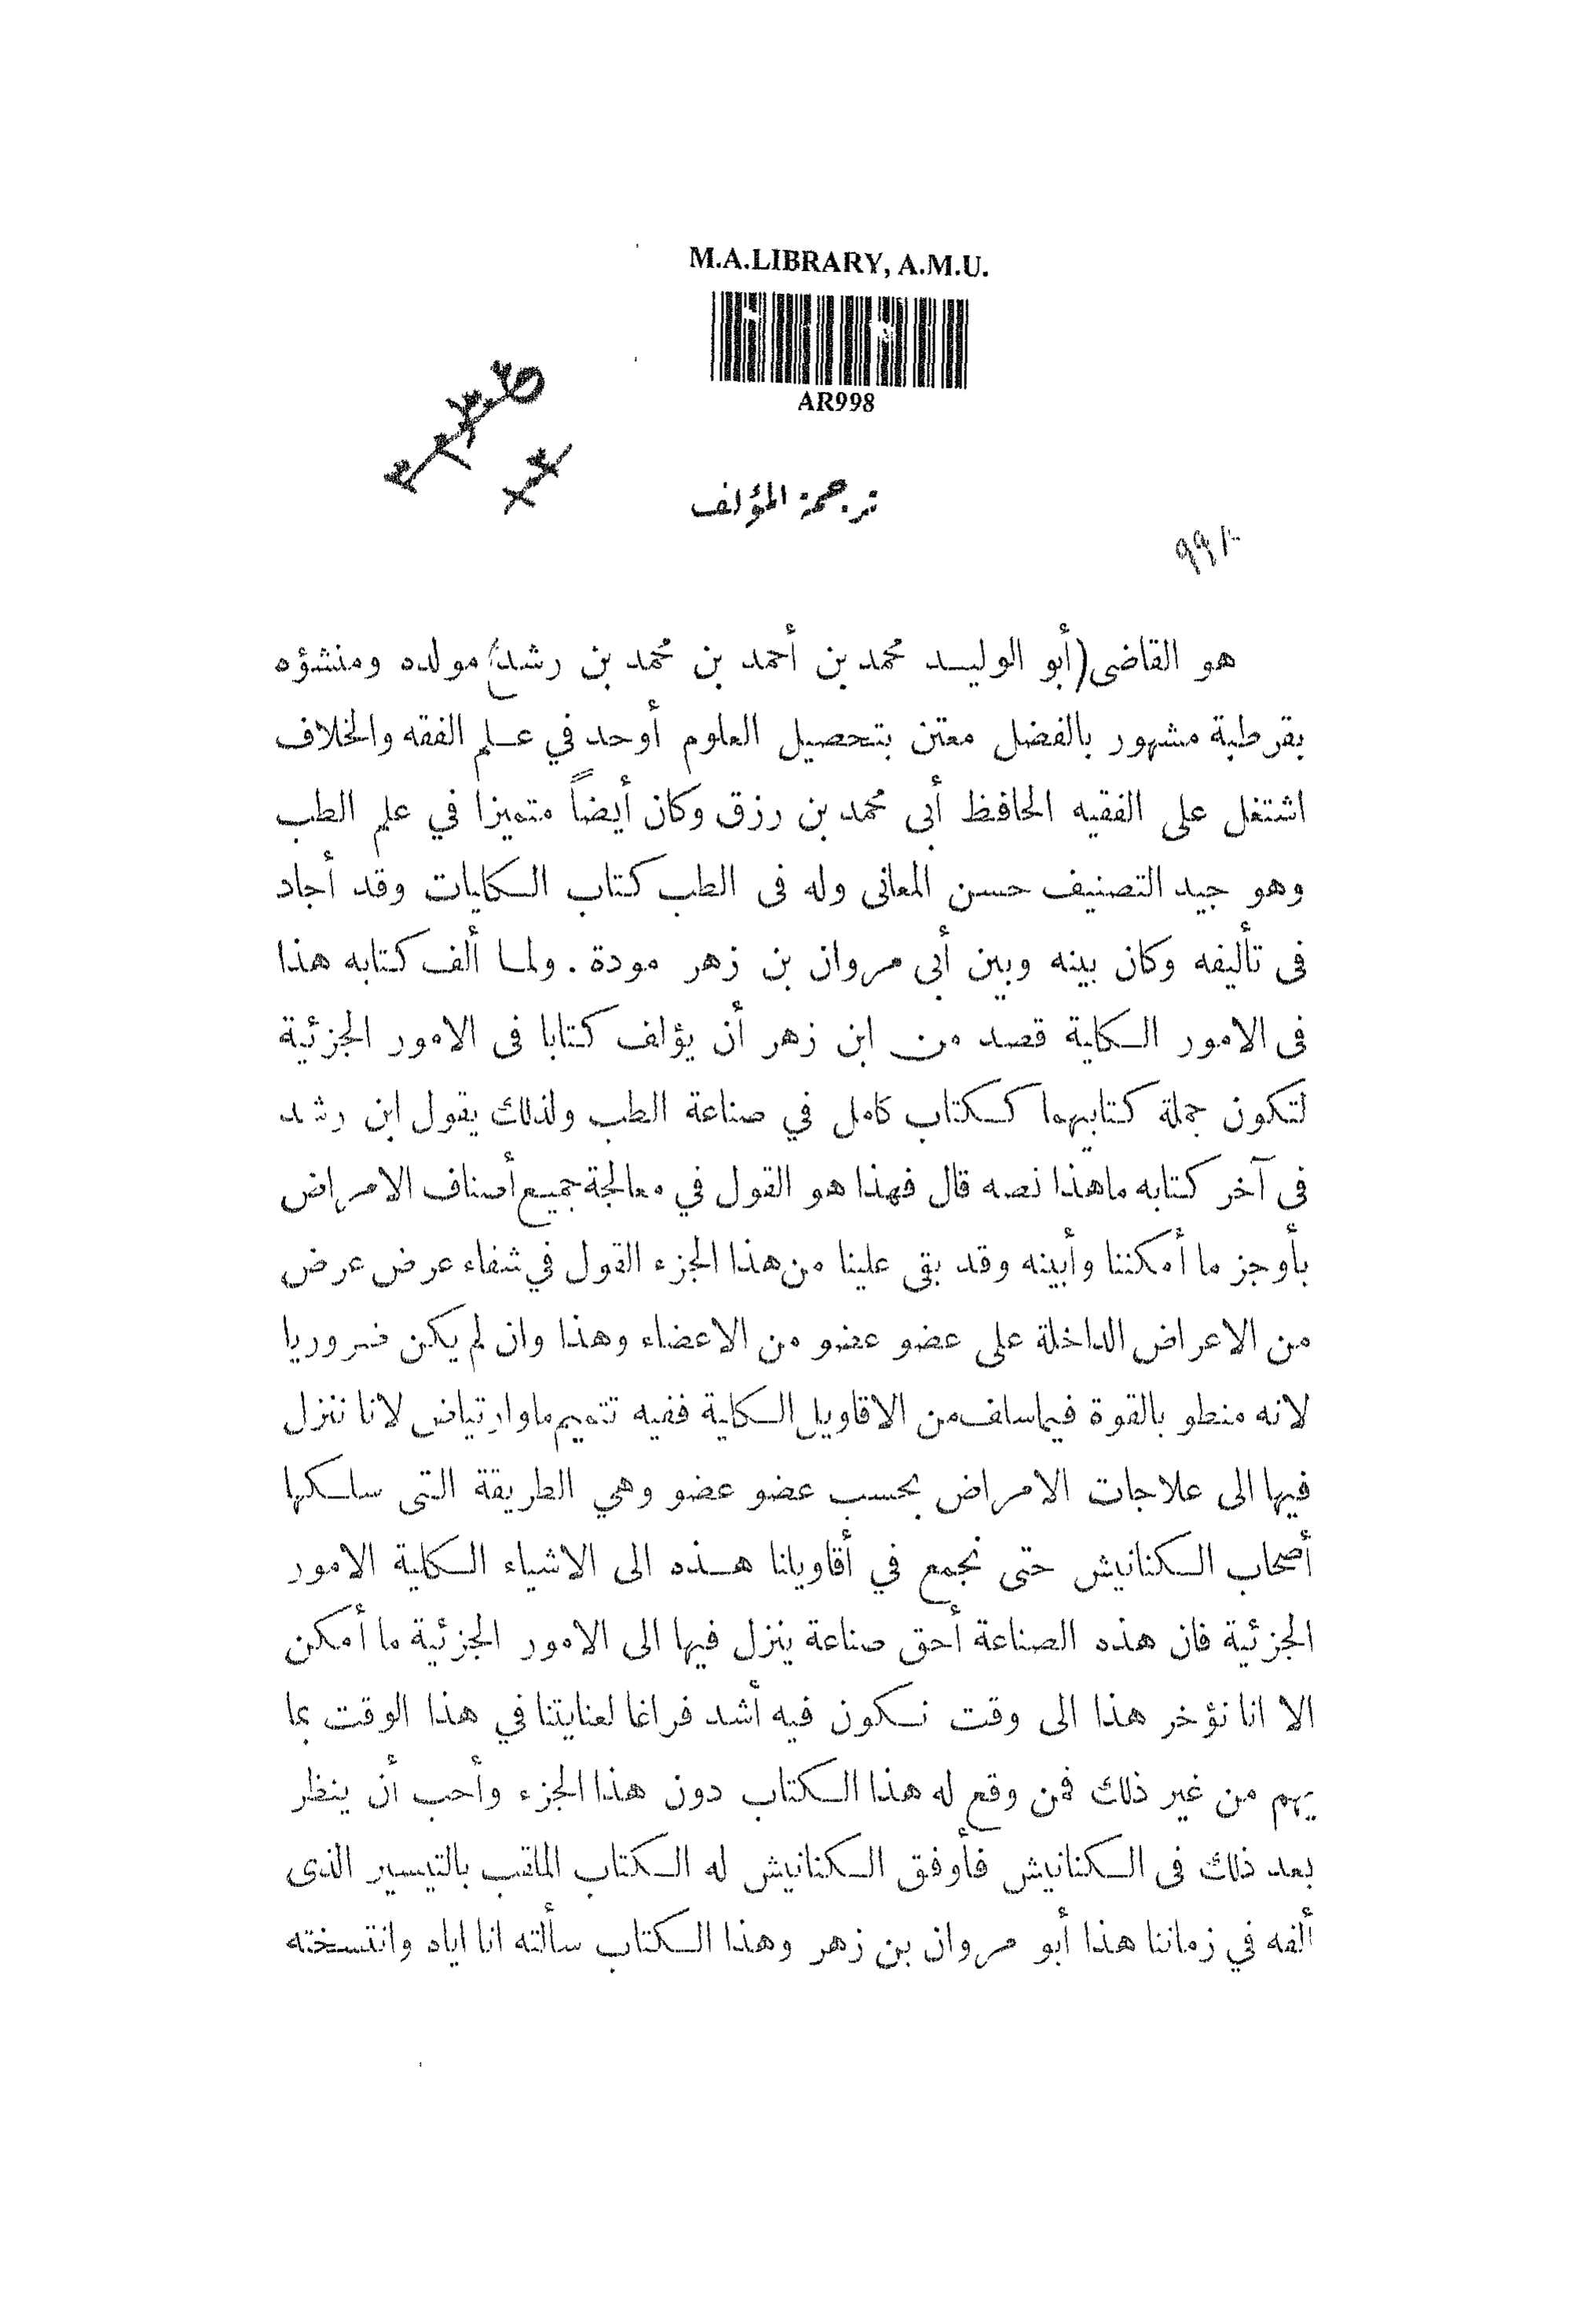 M.A.LIBRARY, A.M.U.
AR998
ترجمة المؤلف
هو القاضى (أبو الوليد محمد بن أحمد بن محمد بن رشد) مولده ومنشؤه
بقرطبة مشهور بالفضل معتن بتحصيل العلوم أوحد في علم الفقه والخلاف
اشتغل على الفقيه الحافظ أبى محمد بن رزق وكان أيضاً متميزا في علم الطب
وهو جيد التصنيف حسن المعانى وله فى الطب كتاب الكليات وقد أجاد
فى تأليفه وكان بينه وبين أبى مروان بن زهر مودة . ولما ألف كتابه هذا
فى الامور الكلية قصد من ابن زهر أن يؤلف كتابا فى الامور الجزئية
لتكون جملة كتابيهما ككتاب كامل في صناعة الطب ولذلك يقول ابن رشد
فى آخر كتابه ماهذا نصه قال فهذا هو القول في معالجة جميع أصناف الامراض
بأوجز ما أمكننا وأبينه وقد بقى علينا من هذا الجزء القول في شفاء عرض عرض
من الاعراض الداخلة على عضو عضو من الاعضاء وهذا وان لم يكن ضروريا
لانه منطو بالقوة فيماسلف من الاقاويل الكلية ففيه تتميم ما وارتياض لانا ننزل
فيها الى علاجات الامراض بحسب عضو عضو وهي الطريقة التى سلكها
أصحاب الكنانيش حتى نجمع في أقاويلنا هذه الى الاشياء الكلية الامور
الجزئية فان هذه الصناعة أحق صناعة ينزل فيها الى الامور الجزئية ما أمكن
الا انا نؤخر هذا الى وقت نكون فيه أشد فراغا لعنايتنا في هذا الوقت بما
يهم من غير ذلك فمن وقع له هذا الكتاب دون هذا الجزء وأحب أن ينظر
بعد ذلك فى الكنانيش فأوفق الكنانيش له الكتاب الملقب بالتيسير الذى
ألفه في زماننا هذا أبو مروان بن زهر وهذا الكتاب سألته انا اياه وانتسخته